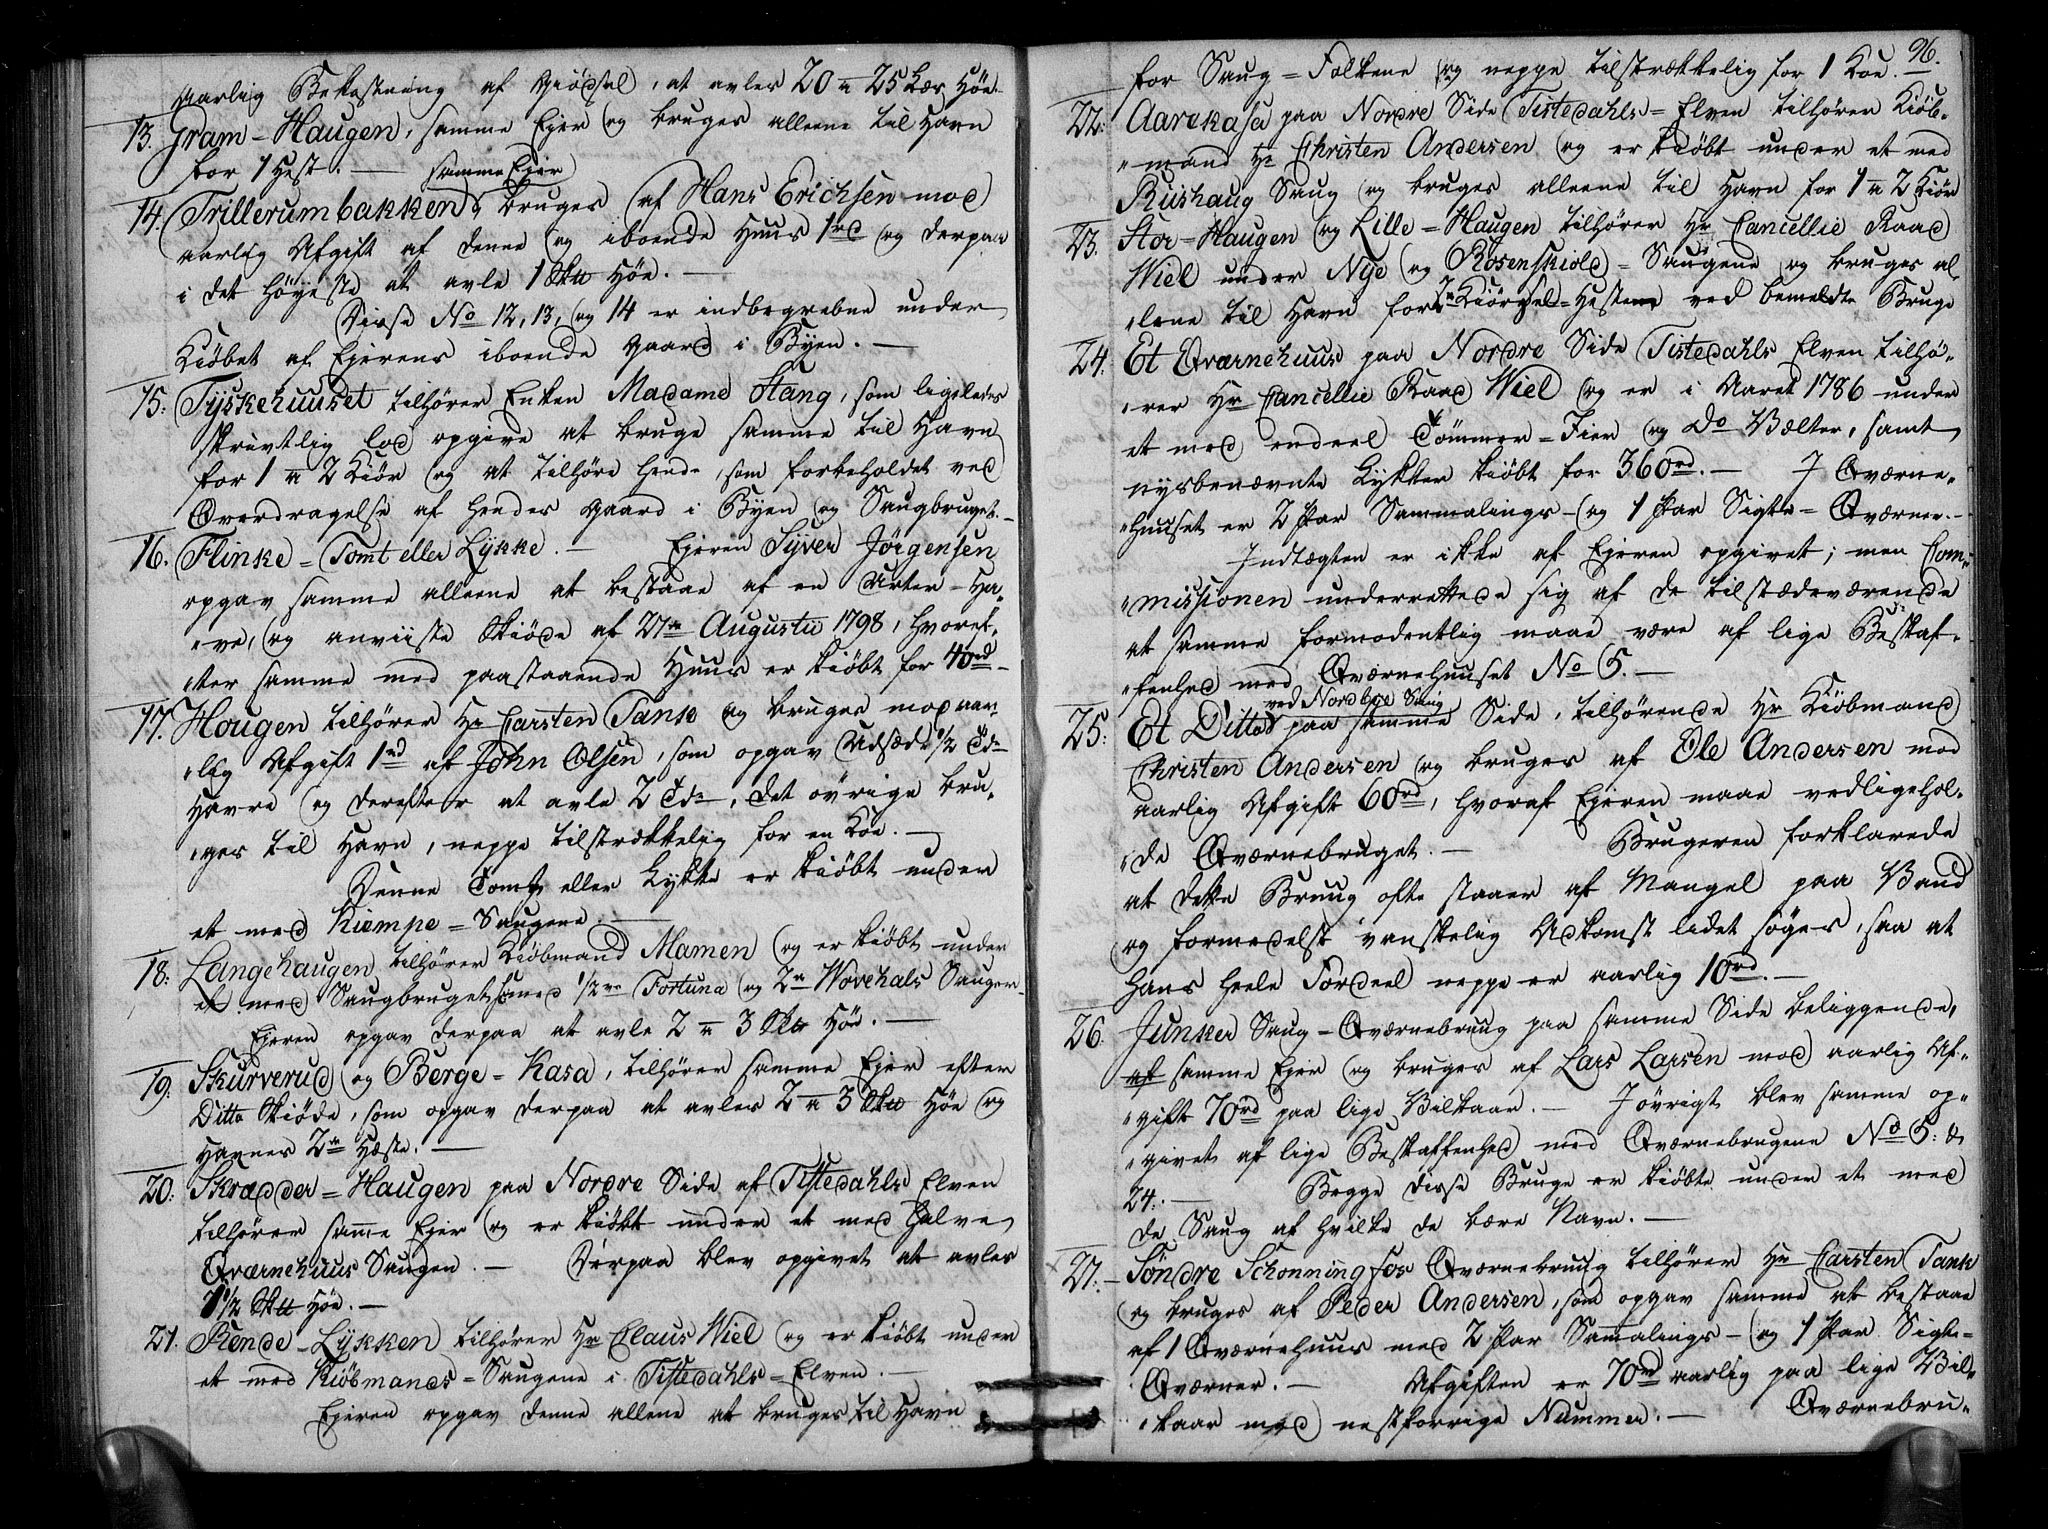 aarlig Bekostning af Giødsel, at avles 20 a 25 Læs Høe
13. Gram=Haugen, samme Ejer og bruges alleene til Havn
for 1 Hest. — samme Ejer
14. Trillerumbakken, bruges af Hans Erichsen mod
aarlig Afgift af denne og iboende Huus 1rd og derpaa
i det høyeste at avle 1 Sku Høe. —
Disse No 12, 13, og 14 er indbegrebne under
Kiøbet af Ejerens iboende Gaard i Byen. —
15: Tyskehuuset tilhører Enken Madame Stang, som ligeledes
skrivtlig lod opgive at bruge samme til Havn
for 1 a 2 Kiør og at tilhøre hende, som forbeholdet ved
Overdragelse af hendes Gaard i Byen og Saugbruget.
16. Flinke=Tomt eller Lykke. — Ejeren Syver Jørgensen
opgav samme alleene at bestaae af en Urter=Ha„
„ve, og anviiste Skiøde af 27de Augusti 1798, hvoref„
„ter samme med paastaaende Huus er kiøbt for 40rd
17. Hougen tilhører Hr Carsten Tank og bruges mod aar„
„lig Afgift 1rd af John Olsen, som opgav Udsæde 1/2 Tde
Havre og derefter at avle 2 Tdr, det øvrige bru„
„ges til Havn, neppe tilstrækkelig for en Koe. —
Denne Tomt eller Lykke er kiøbt under
et med Kiempe=Saugene. —
18: Langehaugen tilhører Kiøbmand Mamen og er kiøbt under
et med Saugbruget, med 1/2 Fortuna og 2 Vovehals Sauger
Ejeren opgav derpaa at avle 2 a 3 Sku Høe. —
19: Skurverud og Berge=Kasa, tilhører samme Ejer efter
Ditto Skiøde, som opgav derpaa at avles 2 a 3 Sku Høe og
Havner 2de Heste. —
20: Skrædder=Haugen paa Nordre Side af Tistedahls Elven
tilhører samme Ejer og er kiøbt under et med halve
Qværnehuus Saugen. — Derpaa blev opgivet at avles
1 1/2 Sku Høe. —
21. Rende-Lykken tilhører Hr Claus Wiel og er kiøbt under
et med Kiøbmands=Saugene i Tistedahls=Elven. —
Ejeren opgav denne allene at bruges til Havn
96.
for Saug=Folkene og neppe tilstrækkelig for 1 Koe.
22: Aarekasa paa Nordre Side Tistedahls=Elven tilhører Kiøb„
„mand Hr Christen Andersen og er kiøbt under et med
Ruishaug Saug og bruges alleene til Havn for 1 a 2 Kiør
23. Stor=Haugen og Lille=Haugen tilhører Hr Cancellie Raad
Wiel under Nye og Rosenskiold=Saugene og bruges al
„lene til Havn for Kiørsel=Hestene ved bemeldte Bruge
24. Et Qværnehuus paa Nordre Side Tistedahls Elven tilhø„
„rer Hr Cancellie Raad Wiel og er i Aaret 1786 under
et med endeel Tømmer=Fier og Do Bælter, samt
nysbenævnte Lykker kiøbt for 360rd. — I Qværne„
„huuset er 2 Par Sammalings- og 1 Par Sigte=Qværner. —
Indtægten er ikke af Ejeren opgivet; men Com„
„missionen underrettede sig af de tilstædeværende
at samme formodentlig maae være af lige Beskaf„
„fenhed med Qværnehuuset No 5. —
ved Nordbye Saug
25: Et Ditto paa samme Side, tilhørende Hr Kiøbmand
Christen Andersen og bruges af Ole Andersen mod
aarlig Afgift 60rd, hvoraf Ejeren maae vedligehol„
„de Qværnebruget. — Brugeren forklarede
at dette Bruug ofte staaer af Mangel paa Vand
og formedelst vanskelig Adkomst lidet søges, saa at
hans heele Fordeel neppe er aarlig 10rd. —
26. Junker Saug=Qværnebruug paa samme Side beliggende,
af samme Ejer og bruges af Lars Larsen mod aarlig Af„
„gift 70rd paa lige Vilkaar. — I øvrigt blev samme op„
„givet af lige Beskaffenhed med Qværnebrugene No 5: &
24: — Begge disse Bruge er kiøbte under et med
de Saug af hvilke de bære Navn. —
27: Søndre Schonningfos Qværnebruug tilhører Hr Carsten Tank
og bruges af Peder Andersen, som opgav samme at bestaae
af 1 Qværnehuus med 2 Par Sammalings- og 1 Par Sigte=
Qværner. — Afgiften er 70rd aarlig paa lige Vil„
„kaar med nestforrige Nummer. — Qværnebru„